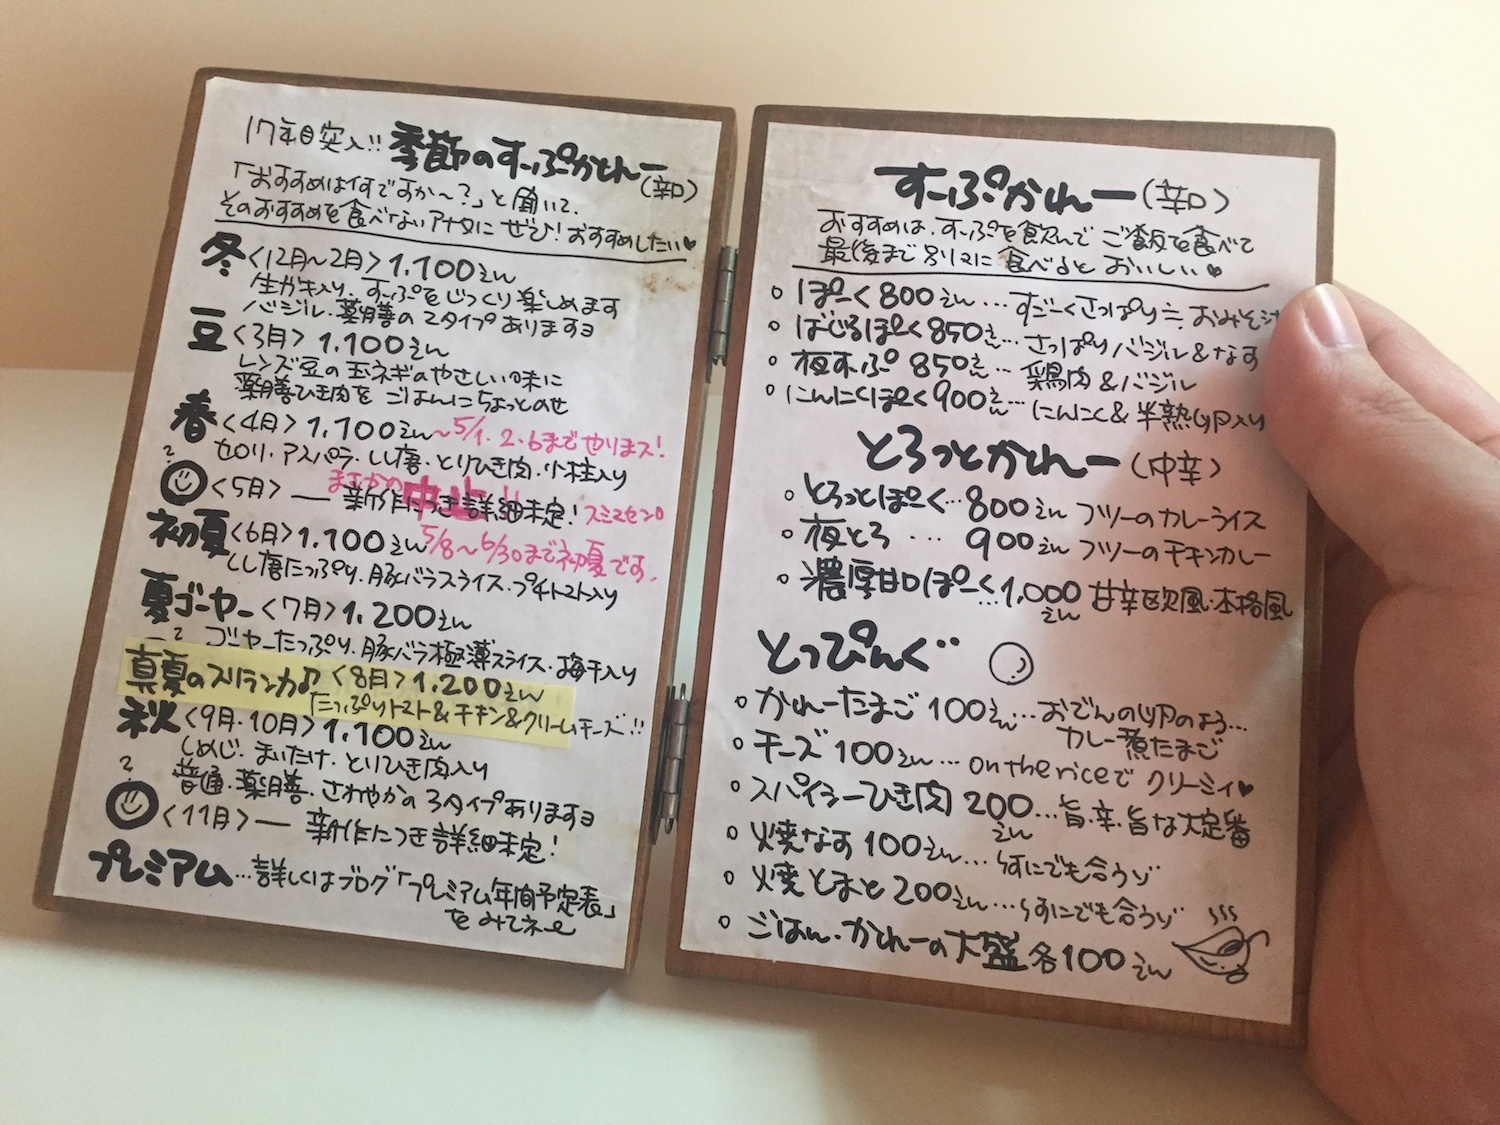 17年目突入!! 季節のすーぷかれー(辛口)
「おすすめは何ですか〜?」と聞いて、
そのおすすめを食べないアナタに ぜひ!おすすめしたい♥
冬<12月〜2月>1,100えん
生ガキ入り、すーぷをじっくり楽しめます
バジル・薬膳の2タイプありますヨ
豆<3月>1,100えん
レンズ豆の玉ネギのやさしい味に
薬膳ひき肉を ごはんにちょっとのせ
春<4月>1,100えん〜5/1.2.6までやりまス!
セロリ・アスパラ・しし唐・とりひき肉・小柱入り
まさかの中止!!
?<5月>― 新作につき詳細未定! スミマセン。
初夏<6月>1,100えん 5/8〜6/30まで初夏です。
しし唐たっぷり、豚バラスライス・プチトマト入り
夏ゴーヤー<7月>1,200えん
ゴーヤーたっぷり、豚バラ極薄スライス・梅干入り
?
真夏のスリランカ♪<8月>1,200えん
たっぷりトマト&チキン&クリームチーズ!!
秋<9月・10月>1,100えん
しめじ・まいたけ・とりひき肉入り
普通・薬膳・さわやかの3タイプありますヨ
?<11月>― 新作につき詳細未定!
プレミアム…詳しくはブログ「プレミアム年間予定表」
をみてネー
すーぷかれー(辛口)
おすすめは、すーぷを飲んで ご飯を食べて
最後まで別々に 食べるとおいしい♥
○ ぽーく800えん…すごーくさっぱり≒おみそ汁
○ ばじるぽーく850えん…さっぱりバジル&なす
○ 夜すぷ 850えん…鶏肉&バジル
○ にんにくぽーく900えん…にんにく&半熟卵入り
とろっとかれー(中辛)
○ とろっとぽーく…800えん フツーのカレーライス
○ 夜とろ … 900えん フツーのチキンカレー
○ 濃厚甘口ぽーく…1,000えん 甘辛欧風・本格風
とっぴんぐ
○ かれーたまご100えん…おでんの卵のよう…
カレー煮たまご
○ チーズ100えん…on the riceで クリーミィ♥
○ スパイシーひき肉200えん…旨・辛・旨な大定番
○ 焼なす100えん…何にでも合うゾ
○ 焼とまと200えん…何にでも合うゾ
○ ごはん・かれーの大盛 各100えん